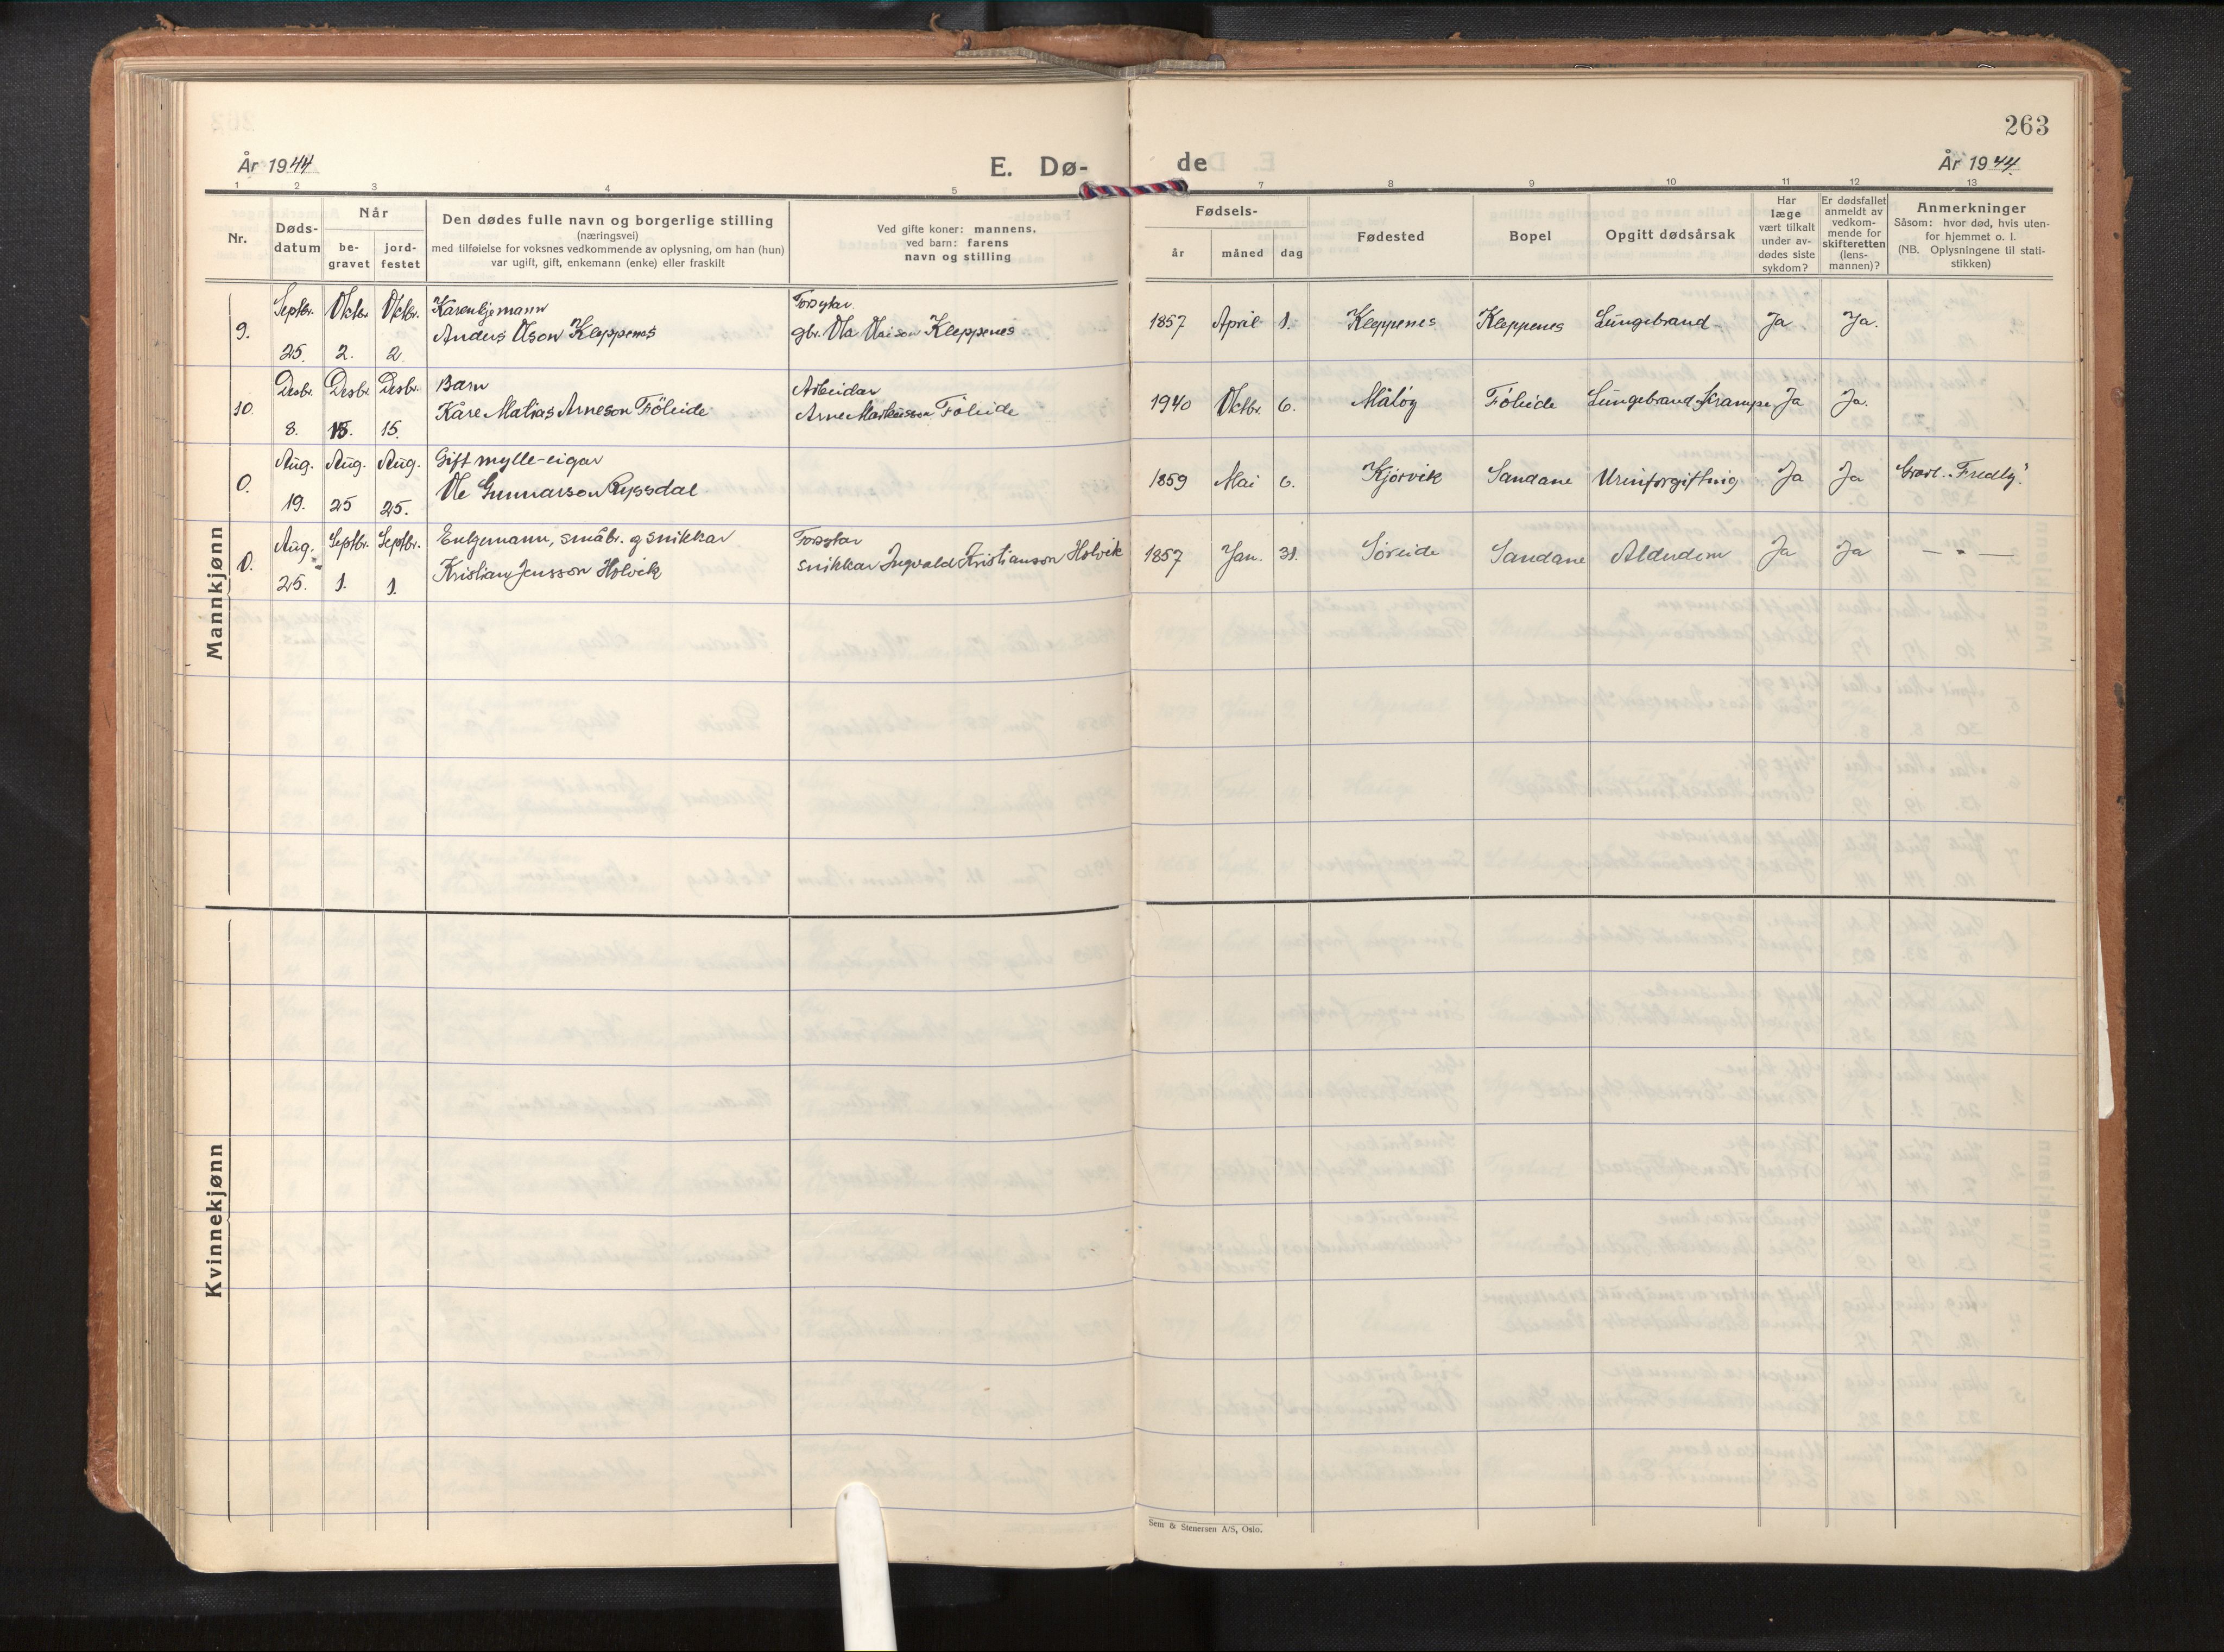 263
År 1944
E. Dø-
de
År 1944.
1 2 3 4 5 7 8 9 10 11 12 13
Nr.
Døds-
datum
Når
be-
gravet
jord-
festet
Den dødes fulle navn og borgerlige stilling
(næringsvei)
med tilføielse for voksnes vedkommende av oplysning, om han (hun)
var ugift, gift, enkemann (enke) eller fraskilt
Ved gifte koner: mannens,
ved barn: farens
navn og stilling
Fødsels-
år måned dag
Fødested
Bopel
Opgitt dødsårsak
Har
læge
vært tilkalt
under av-
dødes siste
sykdom?
Er dødsfallet
anmeldt av
vedkom-
mende for
skifteretten
(lens-
mannen)?
Anmerkninger
Såsom: hvor død, hvis uten-
for hjemmet o. l.
(NB. Oplysningene til stati-
stikken)
Mannkjønn
Septbr. Oktbr. Oktbr. Kårenkjemann Forsytar
9. 25. 2. 2. Anders Olson Kleppenes gbr. Ola Olaison Kleppenes 1857 April 1. Kleppenes Kleppenes Lungebrand Ja Ja.
Desbr. Desbr. Desbr. Barn Arbeidar
10. 8. 15. 15. Kåre Matias Arneson Föleide Arne Föleide 1940 Oktbr. 6. Måløy Föleide Lungebrand, Krampe Ja Ja.
Aug. Aug. Aug. Gift mylle-eigar
0. 19. 25 25. Ole Gunnarson Ryssdal 1859 Mai 6. Kjörvik Sandane Urinforgiftnig Ja Ja "Fredly".
Aug. Septbr. Septbr. Enkjemann, småbr. og snikkar Forsytar
0. 25. 1. 1. Kristian Jensson Holvik snikkar Ingvald Kristianson Holvik 1857 Jan. 31. Søreide Sandane Alderdom Ja Ja — " —
Kvinnekjønn
Sem & Stenersen A/S, Oslo.